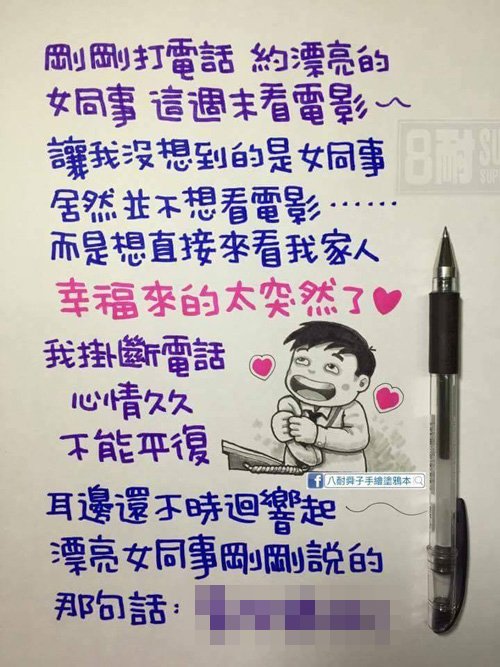 剛剛打電話 約漂亮的
女同事 這週末看電影~
讓我沒想到的是女同事
居然並不想看電影……
而是想直接來看我家人
幸福來的太突然了♥
我掛斷電話
心情久久
不能平復
八耐舜子手繪塗鴉本
耳邊還不時迴響起
漂亮女同事剛剛說的
那句話:
8耐